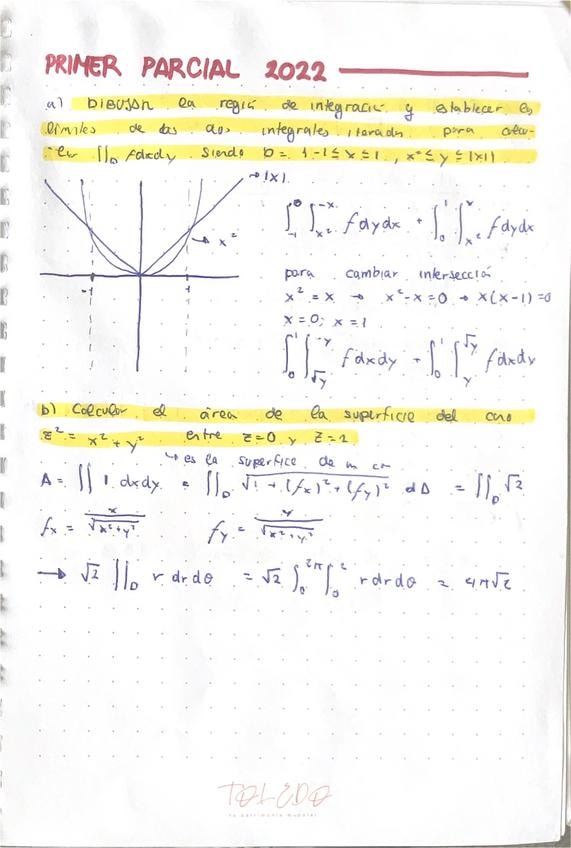 PRIMER PARCIAL 2022
a) DIBUJAR la región de integración y establecer los
límites de las dos integrales iteradas para calcu-
lar ∬_D f dxdy siendo D = 1-1 ≤ x ≤ 1, x² ≤ y ≤ |x|
|x|
x²
-1 1
∫_{-1}^{0} ∫_{x²}^{-x} f dy dx + ∫_0^1 ∫_{x²}^{x} f dy dx
para cambiar intersección
x² = x → x² - x = 0 → x(x-1) = 0
x = 0; x = 1
∫_0^1 ∫_{√y}^{-y} f dx dy + ∫_0^1 ∫_y^{√y} f dx dy
b) Calcular el área de la superficie del cono
z² = x² + y² entre z=0 y z=2
↳ es la superfice de un
A = ∬ 1 dxdy = ∬_D √(1 + (fx)² + (fy)²) dA = ∬_D √2
fx = x/√(x²+y²) fy = y/√(x²+y²)
→ √2 ∬_D r dr dθ = √2 ∫_0^{2π} ∫_0^2 r dr dθ = 4π√2
TOLEDO